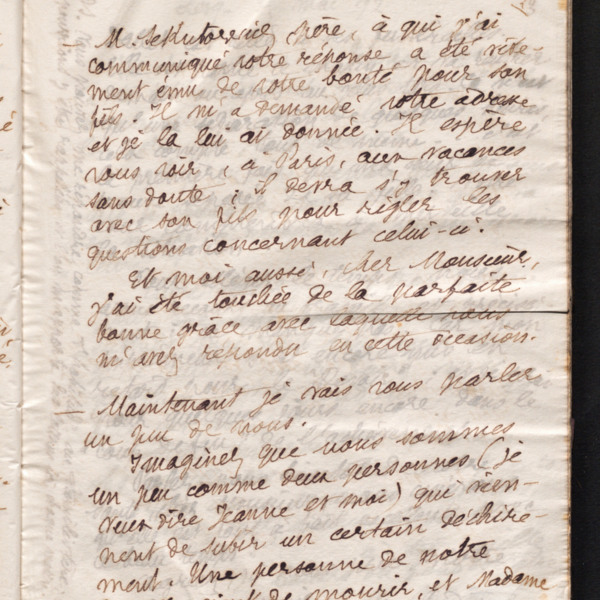 — M. Sekutorvicz père, à qui j'ai
communiqué votre réponse a été vive-
ment ému de votre bonté pour son
fils. Il m'a demandé votre adresse
et je la lui ai donnée. Il espère
vous voir, à Paris, aux vacances
sans doute ; il devra s'y trouver
avec son fils pour régler les
questions concernant celui-ci.
Et moi aussi, cher Monsieur,
j'ai été touchée de la parfaite
bonne grâce avec laquelle vous
m'avez répondu en cette occasion.
— Maintenant je vais vous parler
un peu de nous.
Imaginez que nous sommes
un peu comme deux personnes (je
veux dire Jeanne et moi) qui vien-
nent de subir un certain déchire-
ment. Une personne de notre
de mourir, et Madame